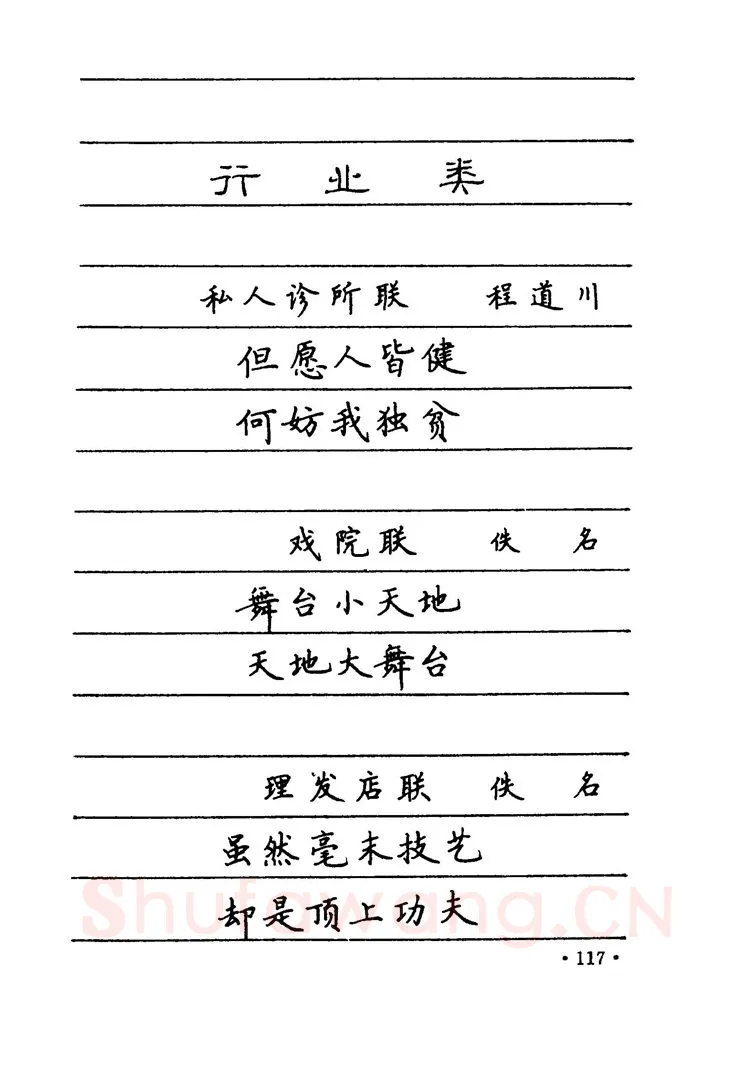 行 业 类
私人诊所联 程道川
但愿人皆健
何妨我独贫
戏院联 佚 名
舞台小天地
天地大舞台
理发店联 佚 名
虽然毫末技艺
却是顶上功夫
Shufawang.CN
·117·